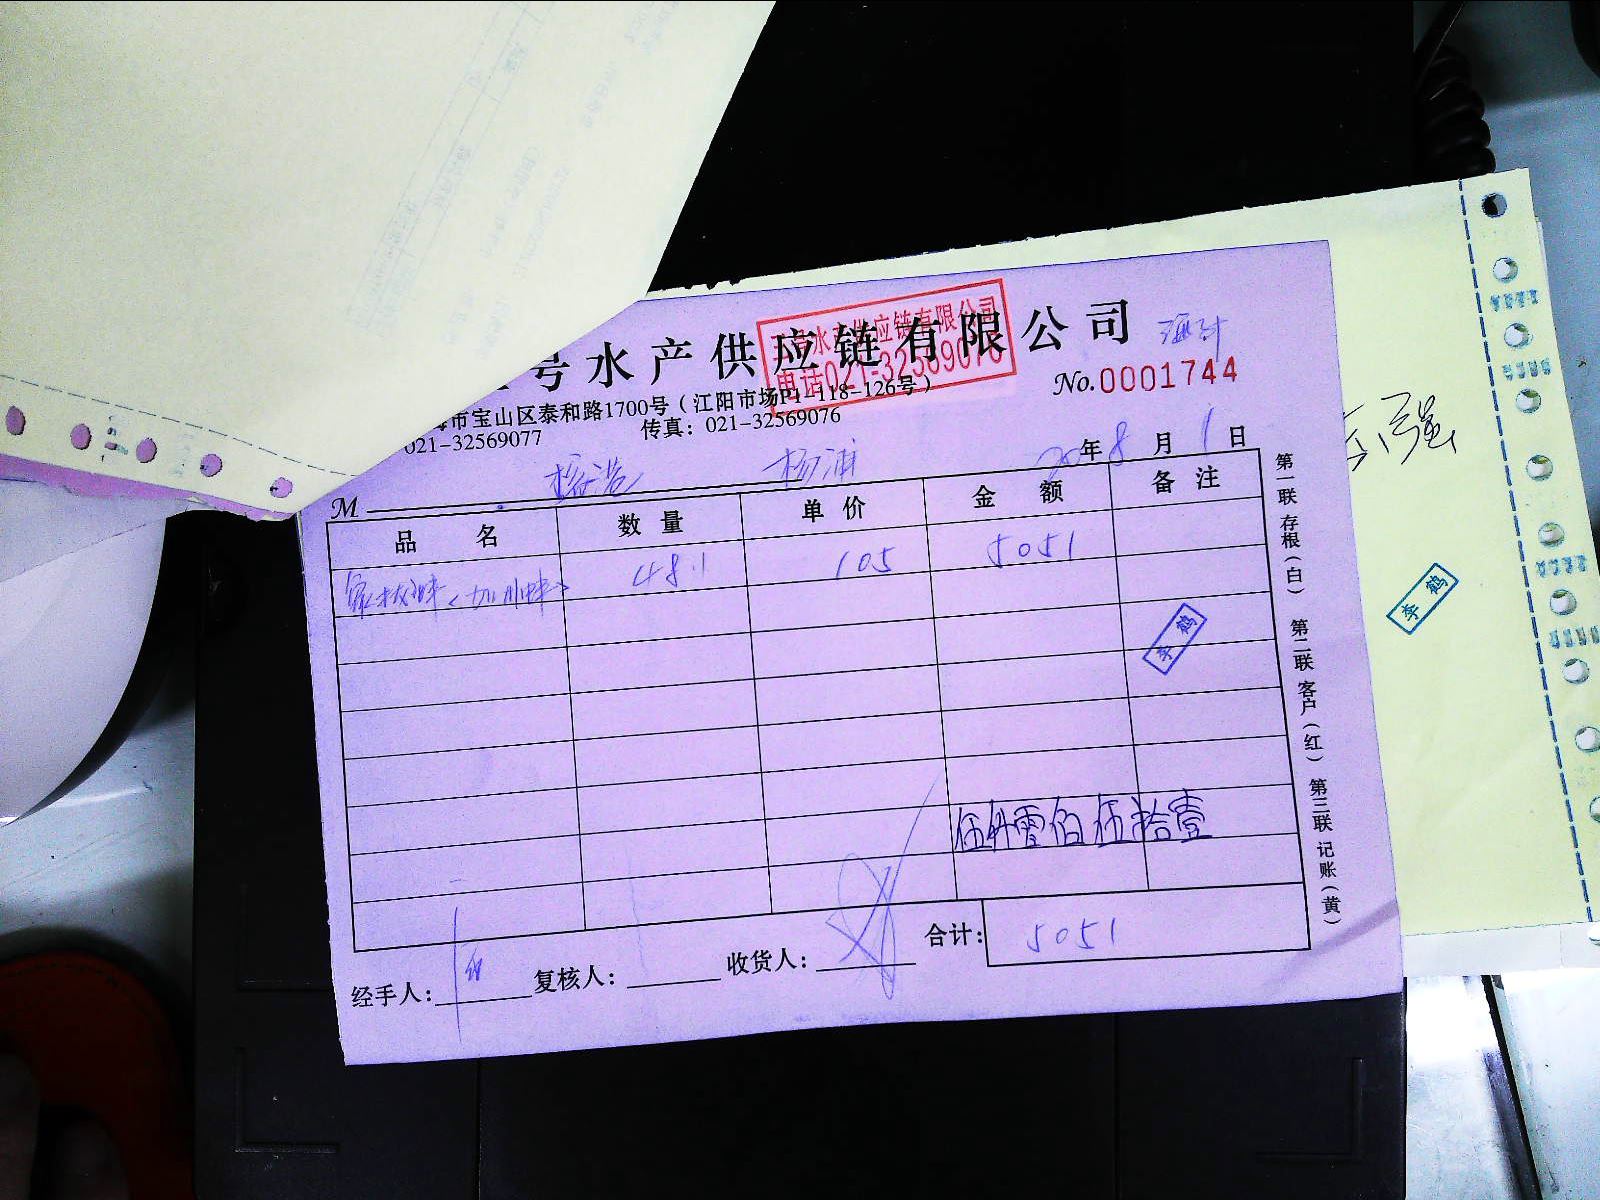 号水产供应链有限公司
水产供应链有限公司
电话021-32569076
No.0001744
海市宝山区泰和路1700号（江阳市场P1-118-126号）
021-32569077 传真：021-32569076
杨浦
20年8月1日
M
品名 数量 单价 金额 备注
48.1 105 5051
李鹤
伍仟零佰伍拾壹
合计： 5051
经手人： 复核人： 收货人：
第一联 存根（白） 第二联 客户（红） 第三联 记账（黄）
强
李鹤